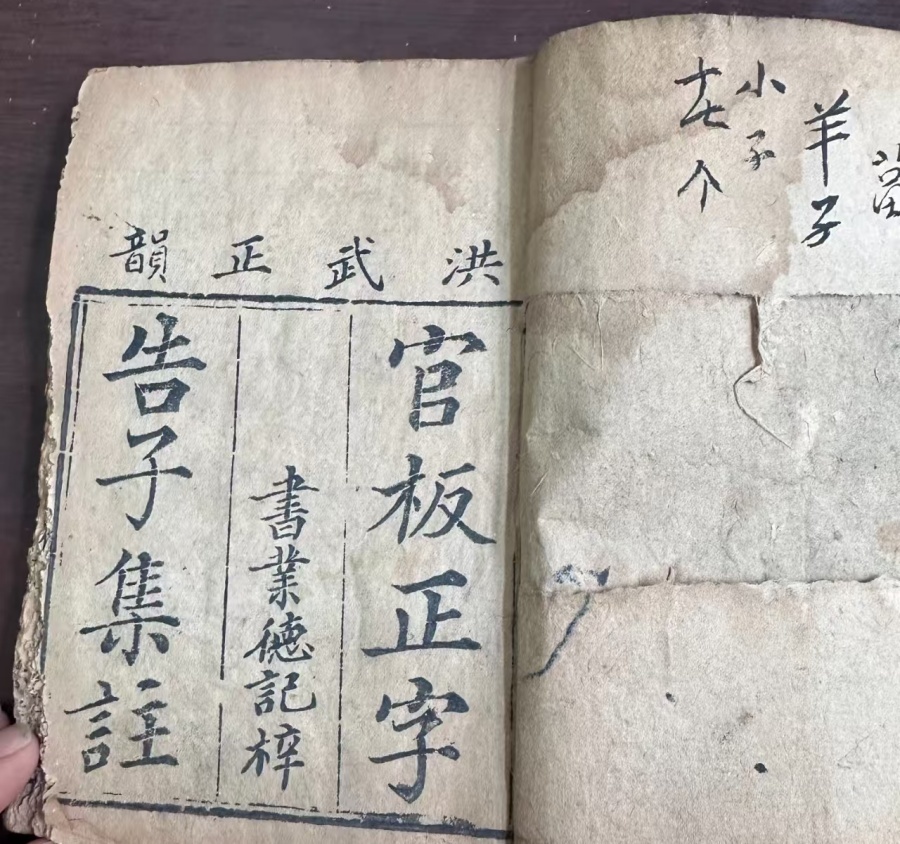 洪武正韻
官板正字
書業德記梓
告子集註
羊子
小子
十七个